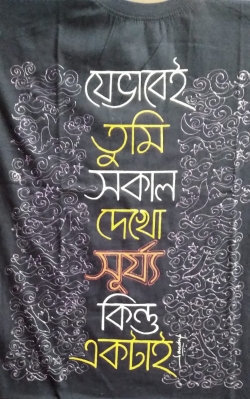 যেভাবেই
তুমি
সকাল
দেখো
সূর্য্য
কিন্তু
একটাই